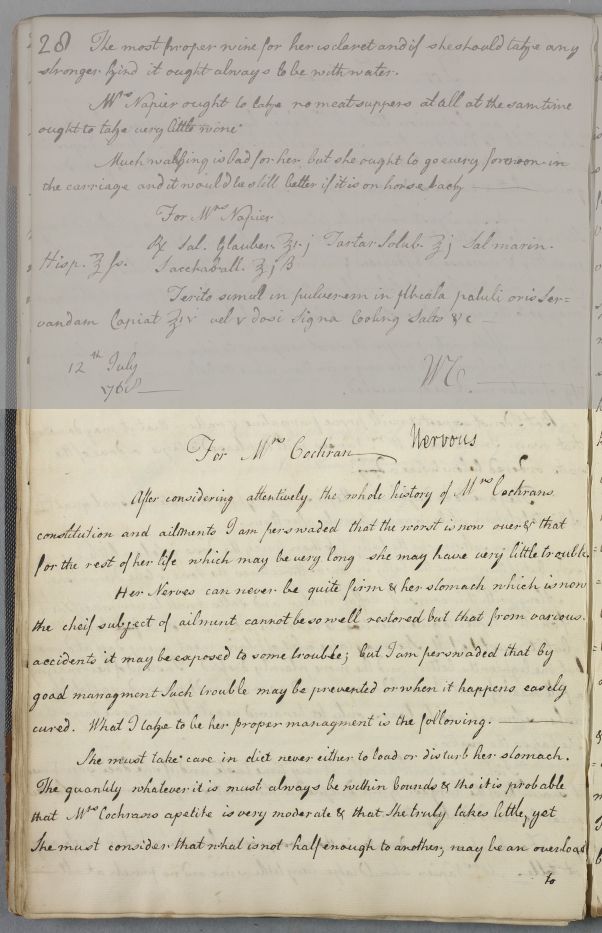 28 The most proper wine for her is claret and if she should take any
stronger kind it ought always to be with water.
Mrs Napier ought to take no meat suppers at all at the same time
ought to take very little wine
Much walking is bad for her, but she ought to go every forenoon in
the carriage and it would be still better if it is on horse back
For Mrs Napier
℞ Sal. Glauber. ℥i. j Tartar Solub. ℥j Sal marin.
Hisp. ℥ fs. Sacchar. all. ℥j
Terito simul in pulverem in phiala patuli oris Ser=
vandam Capiat ʒiv vel v dosi Signa Cooling Salts &c
12th July
1768
WC.
For Mrs Cochran Nervous
After considering attentively the whole history of Mrs Cochrans
constitution and ailments I am perswaded that the worst is now over & that
for the rest of her life which may be very long she may have very little trouble.
Her Nerves can never be quite firm & her stomach which is now
the cheif subject of ailment cannot be so well restored but that from various
accidents it may be exposed to some trouble; but I am perswaded that by
good managment Such trouble may be prevented or when it happens easely
cured. What I take to be her proper managment is the following.
She must take care in diet never either to load or disturb her stomach.
The quantity whatever it is must always be within bounds & tho it is probable
that Mrs Cochrans apetite is very moderate & that She truly takes little, yet
She must consider that what is not half enough to another, may be an overload
to